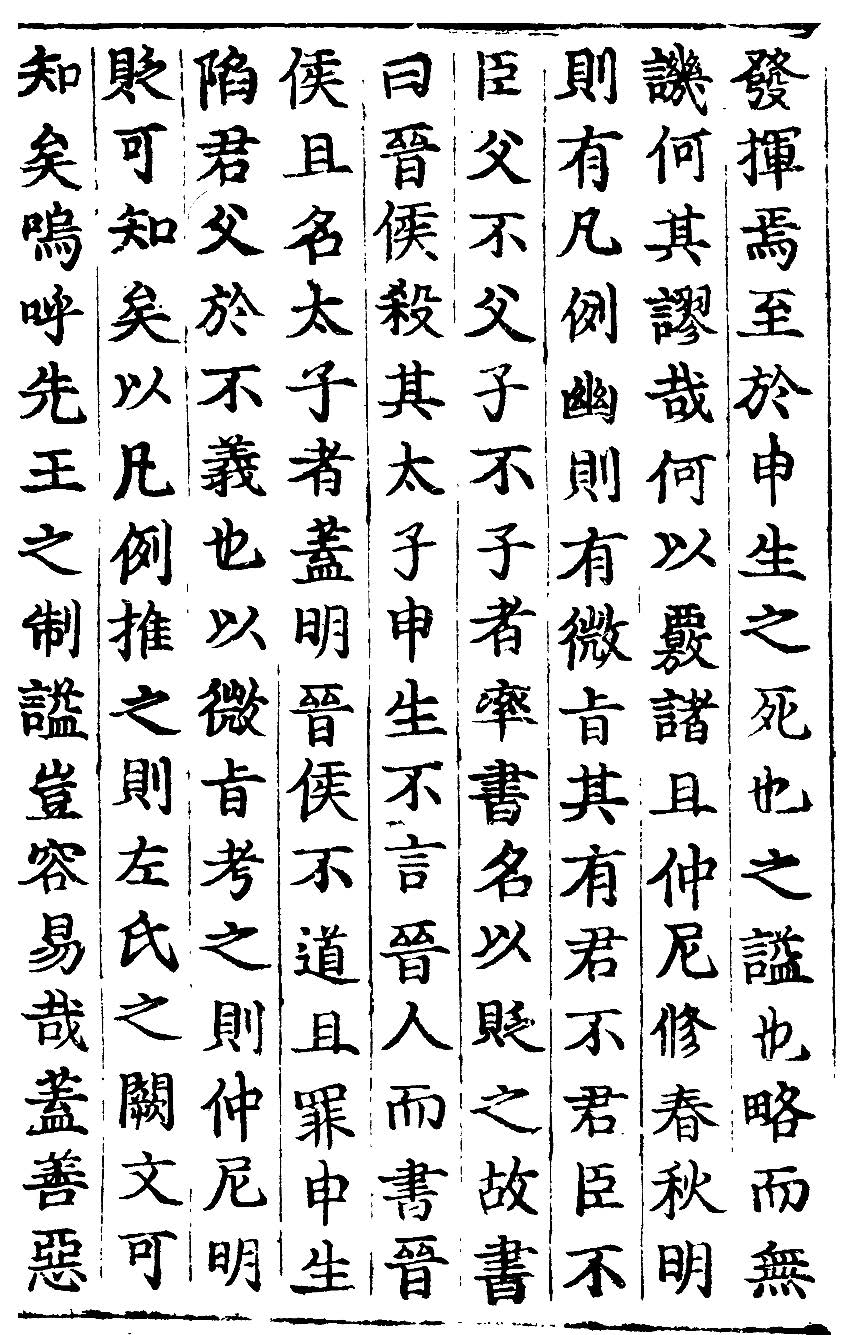 發揮焉至於申生之死也之諡也略而無
譏何其謬哉何以覈諸且仲尼修春秋明
則有凡例幽則有微旨其有君不君臣不
臣父不父子不子者率書名以貶之故書
曰晉侯殺其太子申生不言晉人而書晉
侯且名太子者蓋明晉侯不道且罪申生
陷君父於不義也以微旨考之則仲尼明
貶可知矣以凡例推之則左氏之闕文可
知矣嗚呼先王之制諡豈容易哉蓋善惡